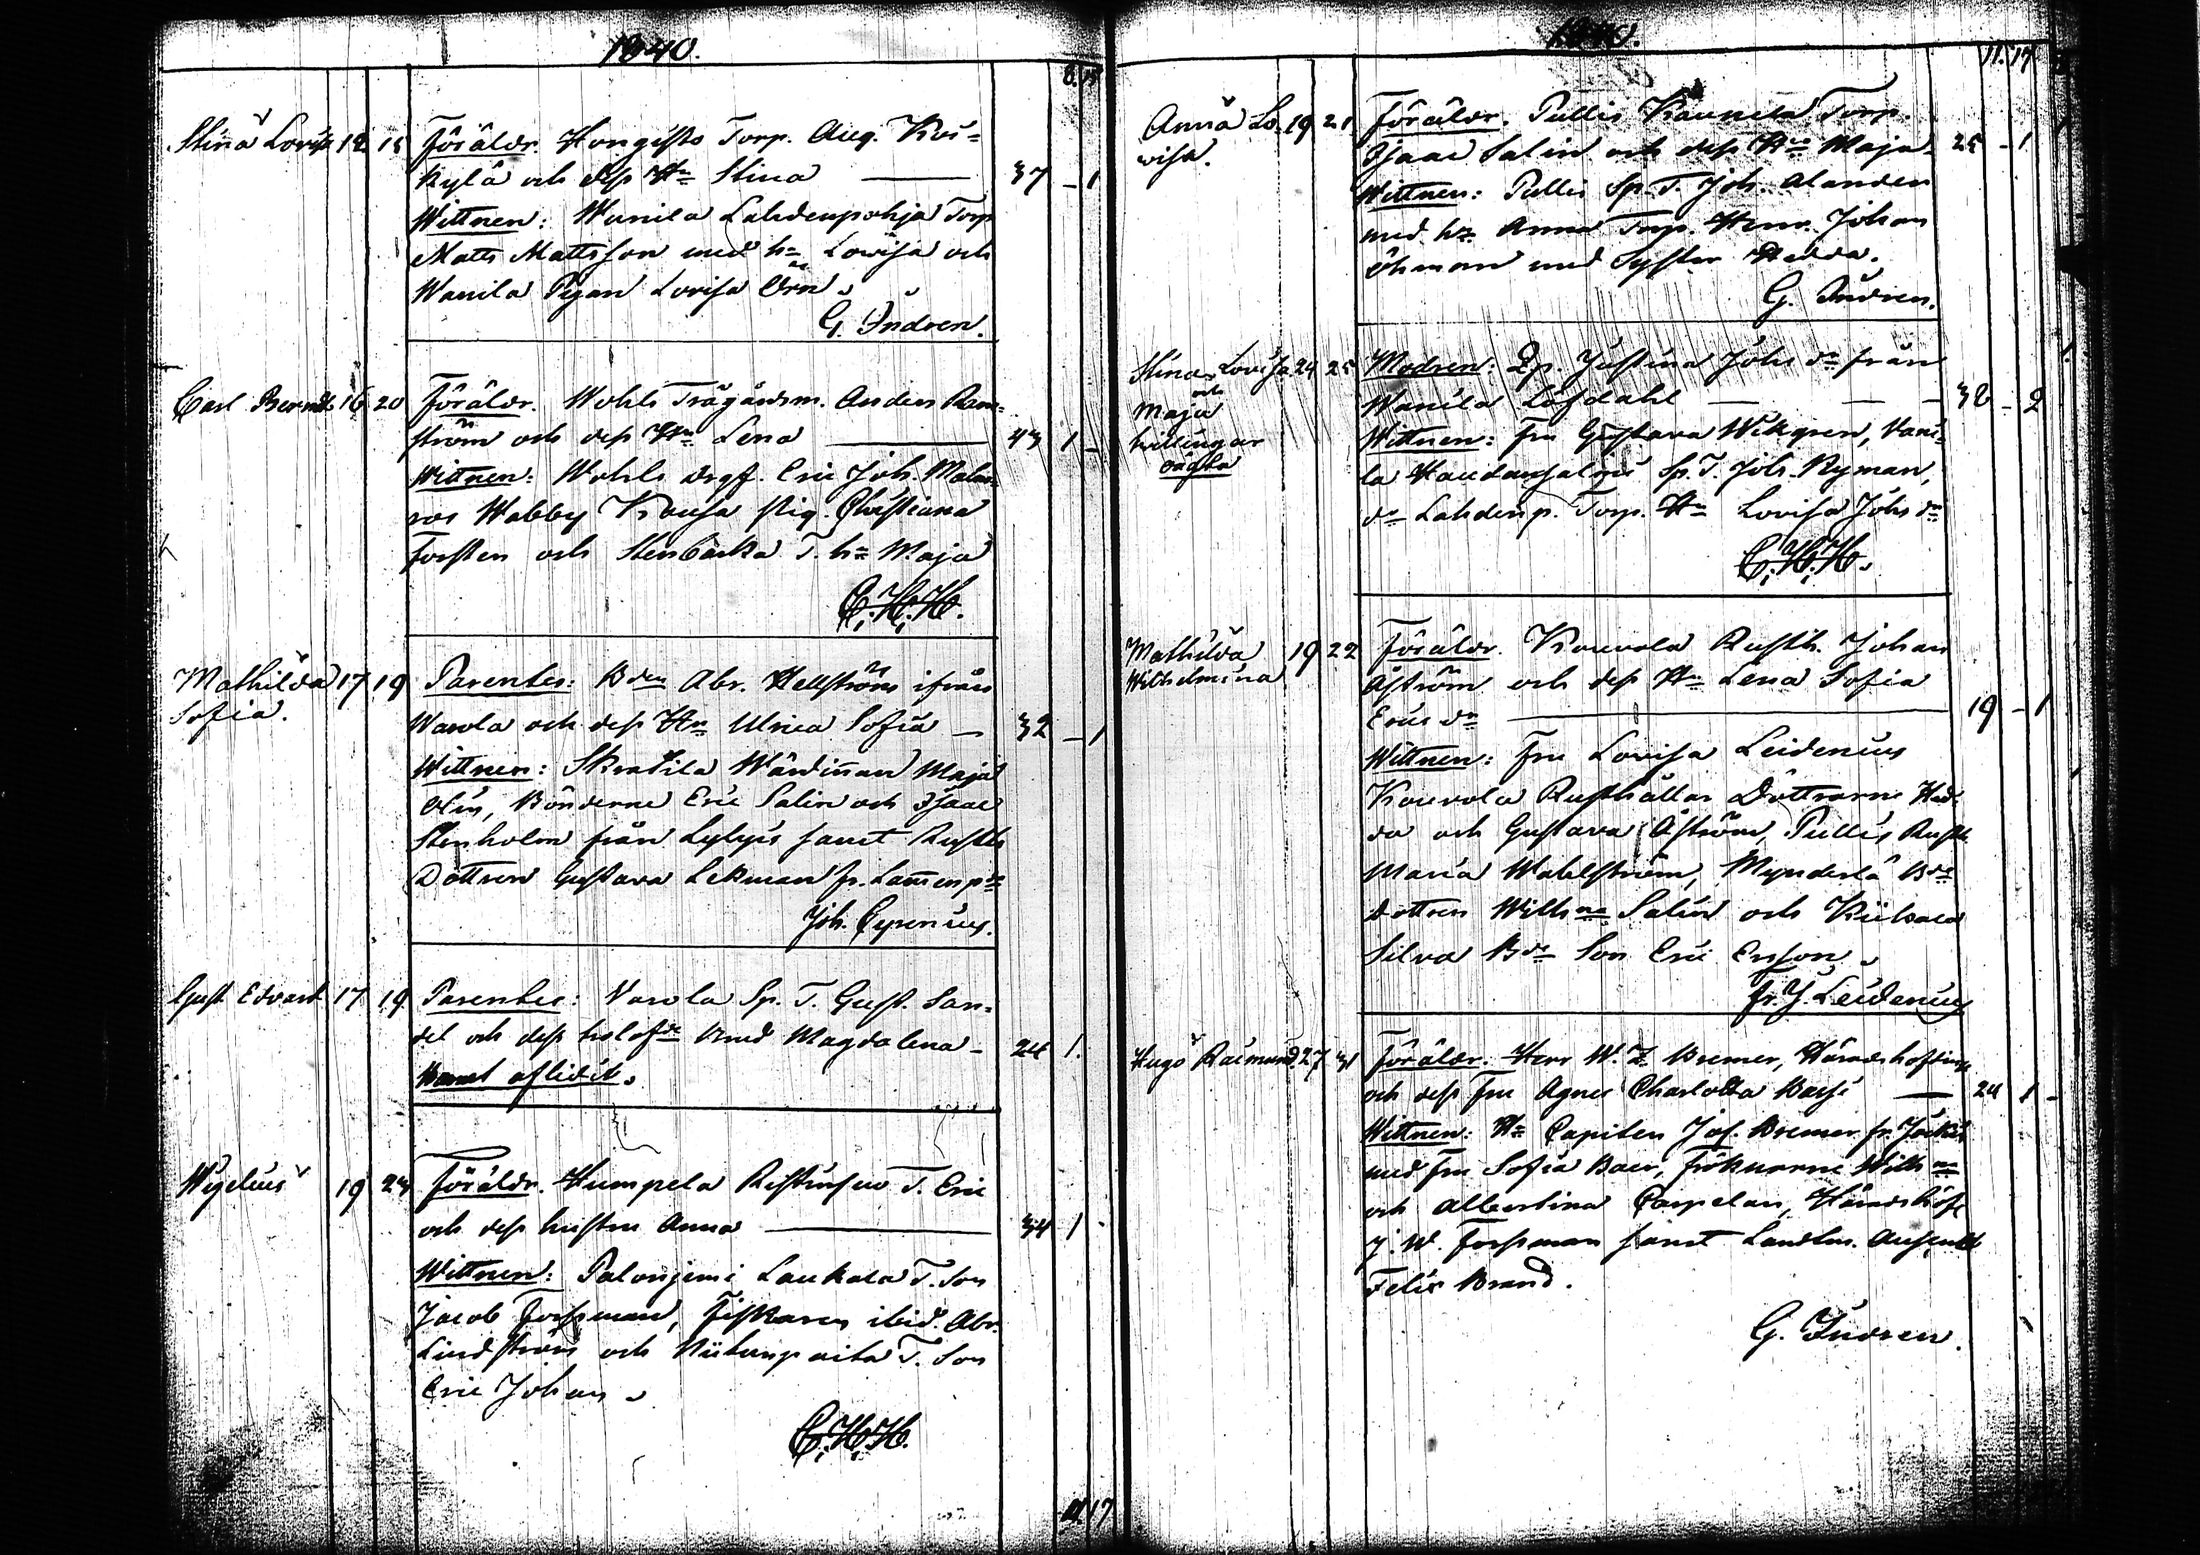 1840.
8. 15
Stina Lovisa 12 15 Föräldr. Hongisto Torp. Aug. Kos-
kylä och dess Hu Stina — 37 - 1
Wittnen: Wanila Lahdenpohja Torp
Matts Mattsson med hu Lovisa och
Wanila Pigan Lovisa Örn.
G. Indren.
Carl Berndt 16 20 Föräldr. Wohls Trägårdsm. Anders Ram-
ström och dess Hu Lena — 43 1 -
Wittnen: Wohls drgf. Eric Joh. Malm-
ros Wabby Kausa pig. Christiana
Forsten och Stenbacka T. hu Maja
C. H. H.
Mathilda 17 19 Parentes: Bden Abr. Hellström ifrån
Sofia.
Warola och dess Hu Ulrica Sofia — 32 - 1
Wittnen: Skratila Wärdinnan Maja
Olin, Bönderne Eric Salin och Isaac
Stenholm från Lylyis samt Rusth
Dottren Gustava Lekman fr.
Joh. Cyrenius.
Gust Edvard 17 19 Parentes: Varola Sp. T. Gust. San-
del och dess Magdalena - 24 1.
Barnet aflidit.
19 23 Föräldr. Humpela T. Eric
och dess hustru Anna — 34 1 -
Wittnen: Palonjemi Laukala T. Son
Jacob Forssman, Fiskaren ibid. Abr.
Lindström och T. Son
Eric Johan.
C. H. H.
11 17
1840.
11. 17
Anna Lo- 19 21 Föräldr. Pullis Kaunela Torp.
visa.
Isaac Salin och dess Maja - 25 - 1
Wittnen: Pullis Sp. T. Joh. Alander
med hu Anna Torp. Johan
Öhman med Syster Hedda.
G. Indren.
Stina Lovisa 24 25 Modren: Qp. Justina Johs dr från
och
Maja
Wanila Löfdahl — — 32 - 2
twillingar
oägta
Wittnen: Fru Gustava Wikgren, Vani-
la Sp. T. Joh. Nyman,
do Lahdenp. Torp. Hu Lovisa Johs dr
C. H. H.
Mathilda 19 22 Föräldr. Kouvola Rusth. Johan
Wilhelmina
Åström och dess Hu Lena Sofia
Erics dr — 19 - 1
Wittnen: Fru Lovisa Leidenius
Kouvola Rusthållar Döttrarne Hed-
da och Gustava Åström, Pullis Rusth.
Maria Wahlström, Mynderlä Bde
dottren Wilhna Salin och
Silva Bde Son Eric Ersson.
Fr. J. Leidenius
Hugo Raimund. 27 31 Föräldr. Herr W. Z. Bremer, Häradshöfding
och dess Fru Agnes Charlotta — 24 1 -
Wittnen: Hr Capiten Jos. Bremer fr.
med Fru Sofia Baer, Fröknarne Wilhna
och Albertina Carpelan, Häradshöf.
J. W. Forssman samt Landtm. Auscult
Felix Brand.
G. Indren.